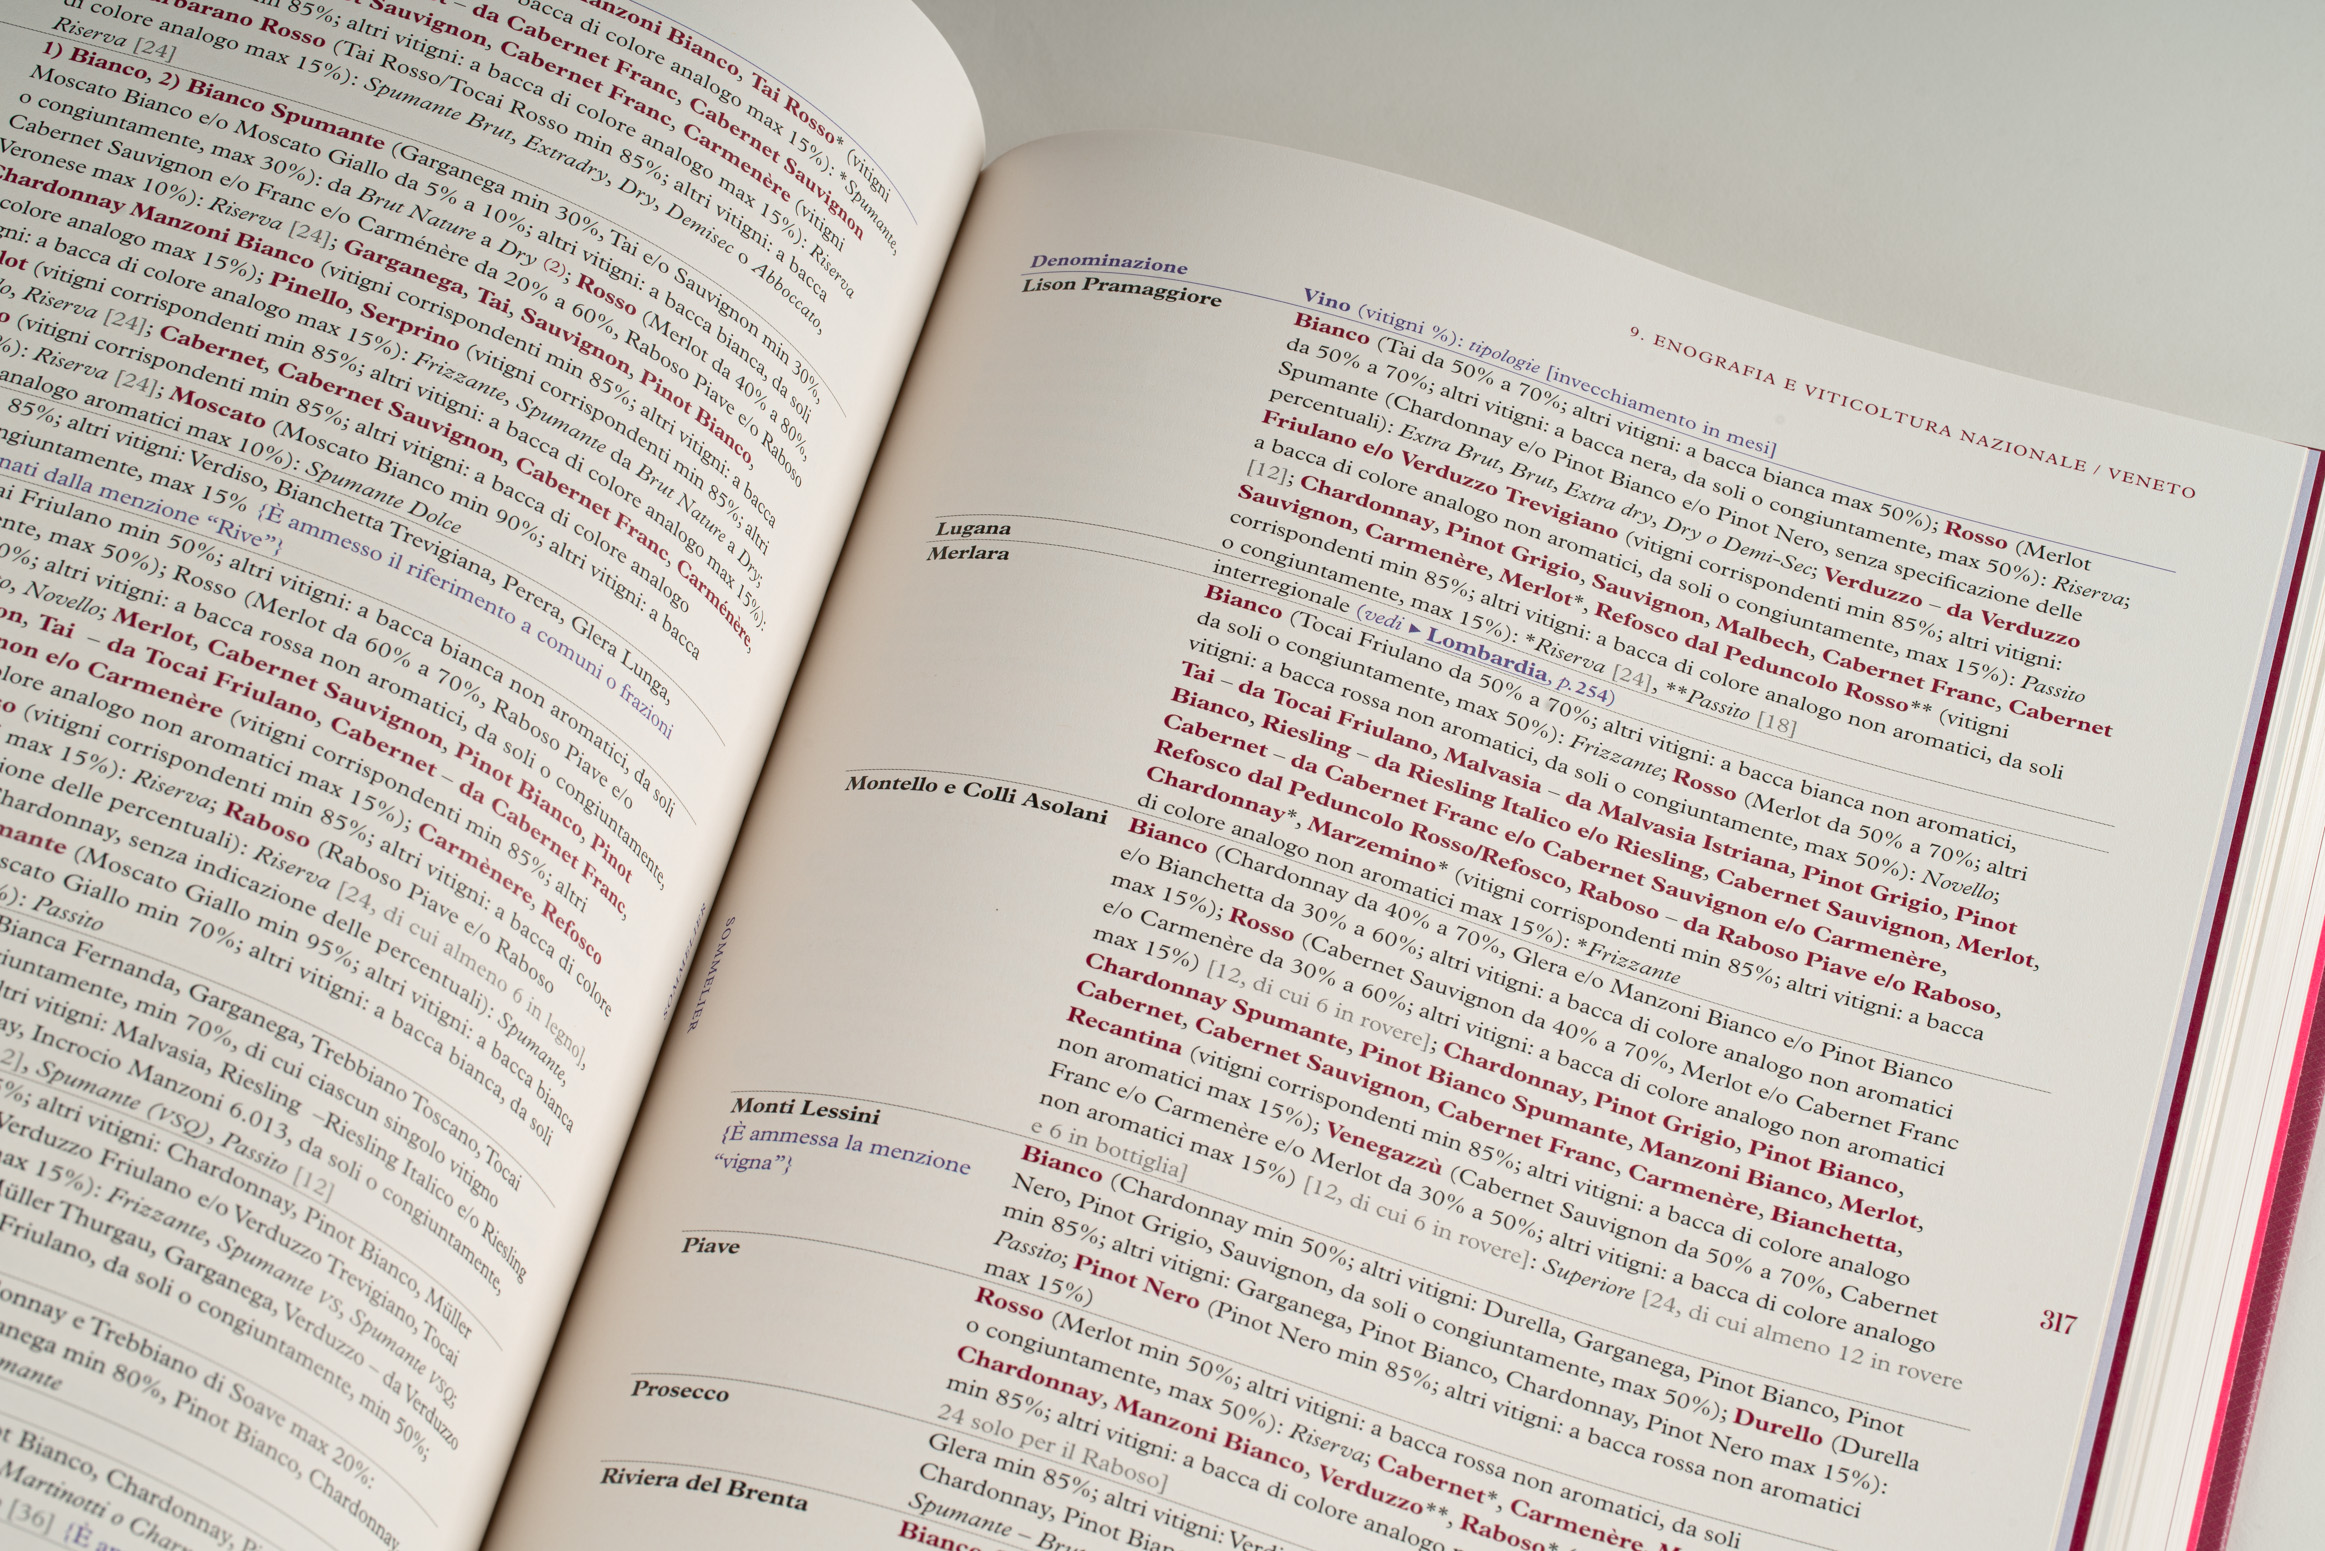 anzoni Bianco, Tai Rosso* (vitigni
bacca di colore analogo max 15%): *Spumante,
t – da Cabernet Franc, Cabernet Sauvignon
t Sauvignon, Cabernet Franc, Carmenère (vitigni
in 85%; altri vitigni: a bacca di colore analogo max 15%): Riserva
rbarano Rosso (Tai Rosso/Tocai Rosso min 85%; altri vitigni: a bacca
di colore analogo max 15%): Spumante Brut, Extradry, Dry, Demisec o Abboccato,
Riserva [24]
1) Bianco, 2) Bianco Spumante (Garganega min 30%, Tai e/o Sauvignon min 30%,
Moscato Bianco e/o Moscato Giallo da 5% a 10%; altri vitigni: a bacca bianca, da soli
o congiuntamente, max 30%): da Brut Nature a Dry (2); Rosso (Merlot da 40% a 80%,
Cabernet Sauvignon e/o Franc e/o Carménère da 20% a 60%, Raboso Piave e/o Raboso
Veronese max 10%): Riserva [24]; Garganega, Tai, Sauvignon, Pinot Bianco,
Chardonnay Manzoni Bianco (vitigni corrispondenti min 85%; altri vitigni: a bacca
colore analogo max 15%); Pinello, Serprino (vitigni corrispondenti min 85%; altri
gni: a bacca di colore analogo max 15%): Frizzante, Spumante da Brut Nature a Dry;
lot (vitigni corrispondenti min 85%; altri vitigni: a bacca di colore analogo max 15%):
lo, Riserva [24]; Cabernet, Cabernet Sauvignon, Cabernet Franc, Carménère,
o (vitigni corrispondenti min 85%; altri vitigni: a bacca di colore analogo
%): Riserva [24]; Moscato (Moscato Bianco min 90%; altri vitigni: a bacca
analogo aromatici max 10%): Spumante Dolce
85%; altri vitigni: Verdiso, Bianchetta Trevigiana, Perera, Glera Lunga,
ngiuntamente, max 15% {È ammesso il riferimento a comuni o frazioni
nati dalla menzione “Rive”}
ai Friulano min 50%; altri vitigni: a bacca bianca non aromatici, da soli
ente, max 50%); Rosso (Merlot da 60% a 70%, Raboso Piave e/o
0%; altri vitigni: a bacca rossa non aromatici, da soli o congiuntamente,
o, Novello; Merlot, Cabernet Sauvignon, Pinot Bianco, Pinot
on, Tai – da Tocai Friulano, Cabernet – da Cabernet Franc,
non e/o Carmenère (vitigni corrispondenti min 85%; altri
olore analogo non aromatici max 15%); Carmènere, Refosco
so (vitigni corrispondenti min 85%; altri vitigni: a bacca di colore
max 15%): Riserva; Raboso (Raboso Piave e/o Raboso
ione delle percentuali): Riserva [24, di cui almeno 6 in legno],
Chardonnay, senza indicazione delle percentuali): Spumante,
mante (Moscato Giallo min 95%; altri vitigni: a bacca bianca
scato Giallo min 70%; altri vitigni: a bacca bianca, da soli
%): Passito
Bianca Fernanda, Garganega, Trebbiano Toscano, Tocai
giuntamente, min 70%, di cui ciascun singolo vitigno
ltri vitigni: Malvasia, Riesling –Riesling Italico e/o Riesling
ay, Incrocio Manzoni 6.013, da soli o congiuntamente,
2], Spumante (VSQ), Passito [12]
5%; altri vitigni: Chardonnay, Pinot Bianco, Müller
Verduzzo Friulano e/o Verduzzo Trevigiano, Tocai
max 15%): Frizzante, Spumante VS, Spumante VSQ;
Müller Thurgau, Garganega, Verduzzo – da Verduzzo
Friulano, da soli o congiuntamente, min 50%;
onnay e Trebbiano di Soave max 20%:
anega min 80%, Pinot Bianco, Chardonnay
mante
ot Bianco, Chardonnay, Pi
Martinotti o Charm
[36] {È am
SOMMELIER
9. ENOGRAFIA E VITICOLTURA NAZIONALE / VENETO
Denominazione
Vino (vitigni %): tipologie [invecchiamento in mesi]
Lison Pramaggiore
Bianco (Tai da 50% a 70%; altri vitigni: a bacca bianca max 50%); Rosso (Merlot
da 50% a 70%; altri vitigni: a bacca nera, da soli o congiuntamente, max 50%): Riserva;
Spumante (Chardonnay e/o Pinot Bianco e/o Pinot Nero, senza specificazione delle
percentuali): Extra Brut, Brut, Extra dry, Dry o Demi-Sec; Verduzzo – da Verduzzo
Friulano e/o Verduzzo Trevigiano (vitigni corrispondenti min 85%; altri vitigni:
a bacca di colore analogo non aromatici, da soli o congiuntamente, max 15%): Passito
[12]; Chardonnay, Pinot Grigio, Sauvignon, Malbech, Cabernet Franc, Cabernet
Sauvignon, Carmenère, Merlot*, Refosco dal Peduncolo Rosso** (vitigni
corrispondenti min 85%; altri vitigni: a bacca di colore analogo non aromatici, da soli
o congiuntamente, max 15%): *Riserva [24], **Passito [18]
Lugana
interregionale (vedi ▸ Lombardia, p.254)
Merlara
Bianco (Tocai Friulano da 50% a 70%; altri vitigni: a bacca bianca non aromatici,
da soli o congiuntamente, max 50%): Frizzante; Rosso (Merlot da 50% a 70%; altri
vitigni: a bacca rossa non aromatici, da soli o congiuntamente, max 50%): Novello;
Tai – da Tocai Friulano, Malvasia – da Malvasia Istriana, Pinot Grigio, Pinot
Bianco, Riesling – da Riesling Italico e/o Riesling, Cabernet Sauvignon, Merlot,
Cabernet – da Cabernet Franc e/o Cabernet Sauvignon e/o Carmenère,
Refosco dal Peduncolo Rosso/Refosco, Raboso – da Raboso Piave e/o Raboso,
Chardonnay*, Marzemino* (vitigni corrispondenti min 85%; altri vitigni: a bacca
di colore analogo non aromatici max 15%): *Frizzante
Montello e Colli Asolani
Bianco (Chardonnay da 40% a 70%, Glera e/o Manzoni Bianco e/o Pinot Bianco
e/o Bianchetta da 30% a 60%; altri vitigni: a bacca di colore analogo non aromatici
max 15%); Rosso (Cabernet Sauvignon da 40% a 70%, Merlot e/o Cabernet Franc
e/o Carmenère da 30% a 60%; altri vitigni: a bacca di colore analogo non aromatici
max 15%) [12, di cui 6 in rovere]; Chardonnay, Pinot Grigio, Pinot Bianco,
Chardonnay Spumante, Pinot Bianco Spumante, Manzoni Bianco, Merlot,
Cabernet, Cabernet Sauvignon, Cabernet Franc, Carmenère, Bianchetta,
Recantina (vitigni corrispondenti min 85%; altri vitigni: a bacca di colore analogo
non aromatici max 15%); Venegazzù (Cabernet Sauvignon da 50% a 70%, Cabernet
Franc e/o Carmenère e/o Merlot da 30% a 50%; altri vitigni: a bacca di colore analogo
non aromatici max 15%) [12, di cui 6 in rovere]: Superiore [24, di cui almeno 12 in rovere
e 6 in bottiglia]
Monti Lessini
{È ammessa la menzione
“vigna”}
Bianco (Chardonnay min 50%; altri vitigni: Durella, Garganega, Pinot Bianco, Pinot
Nero, Pinot Grigio, Sauvignon, da soli o congiuntamente, max 50%); Durello (Durella
min 85%; altri vitigni: Garganega, Pinot Bianco, Chardonnay, Pinot Nero max 15%):
Passito; Pinot Nero (Pinot Nero min 85%; altri vitigni: a bacca rossa non aromatici
max 15%)
Piave
Rosso (Merlot min 50%; altri vitigni: a bacca rossa non aromatici, da soli
o congiuntamente, max 50%): Riserva; Cabernet*, Carmenère, M
Chardonnay, Manzoni Bianco, Verduzzo**, Raboso*
min 85%; altri vitigni: a bacca di colore analogo
24 solo per il Raboso]
Prosecco
Glera min 85%; altri vitigni: Verdi
Chardonnay, Pinot Bian
Spumante – Bru
Riviera del Brenta
Bianco
317